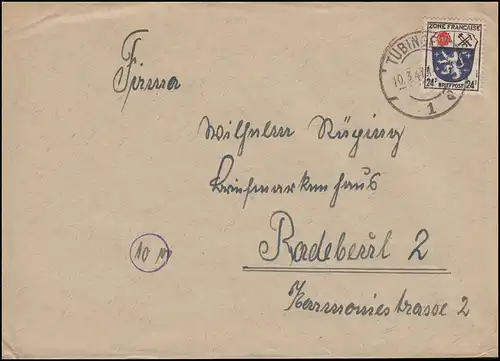 ZONE FRANÇAISE
TÜBINGEN
10.3.47
1
24 BRIEFPOST 24
Firma
Wilhelm Rüging
Briefmarkenhaus
Radebeul 2
Harmoniestrasse 2
10